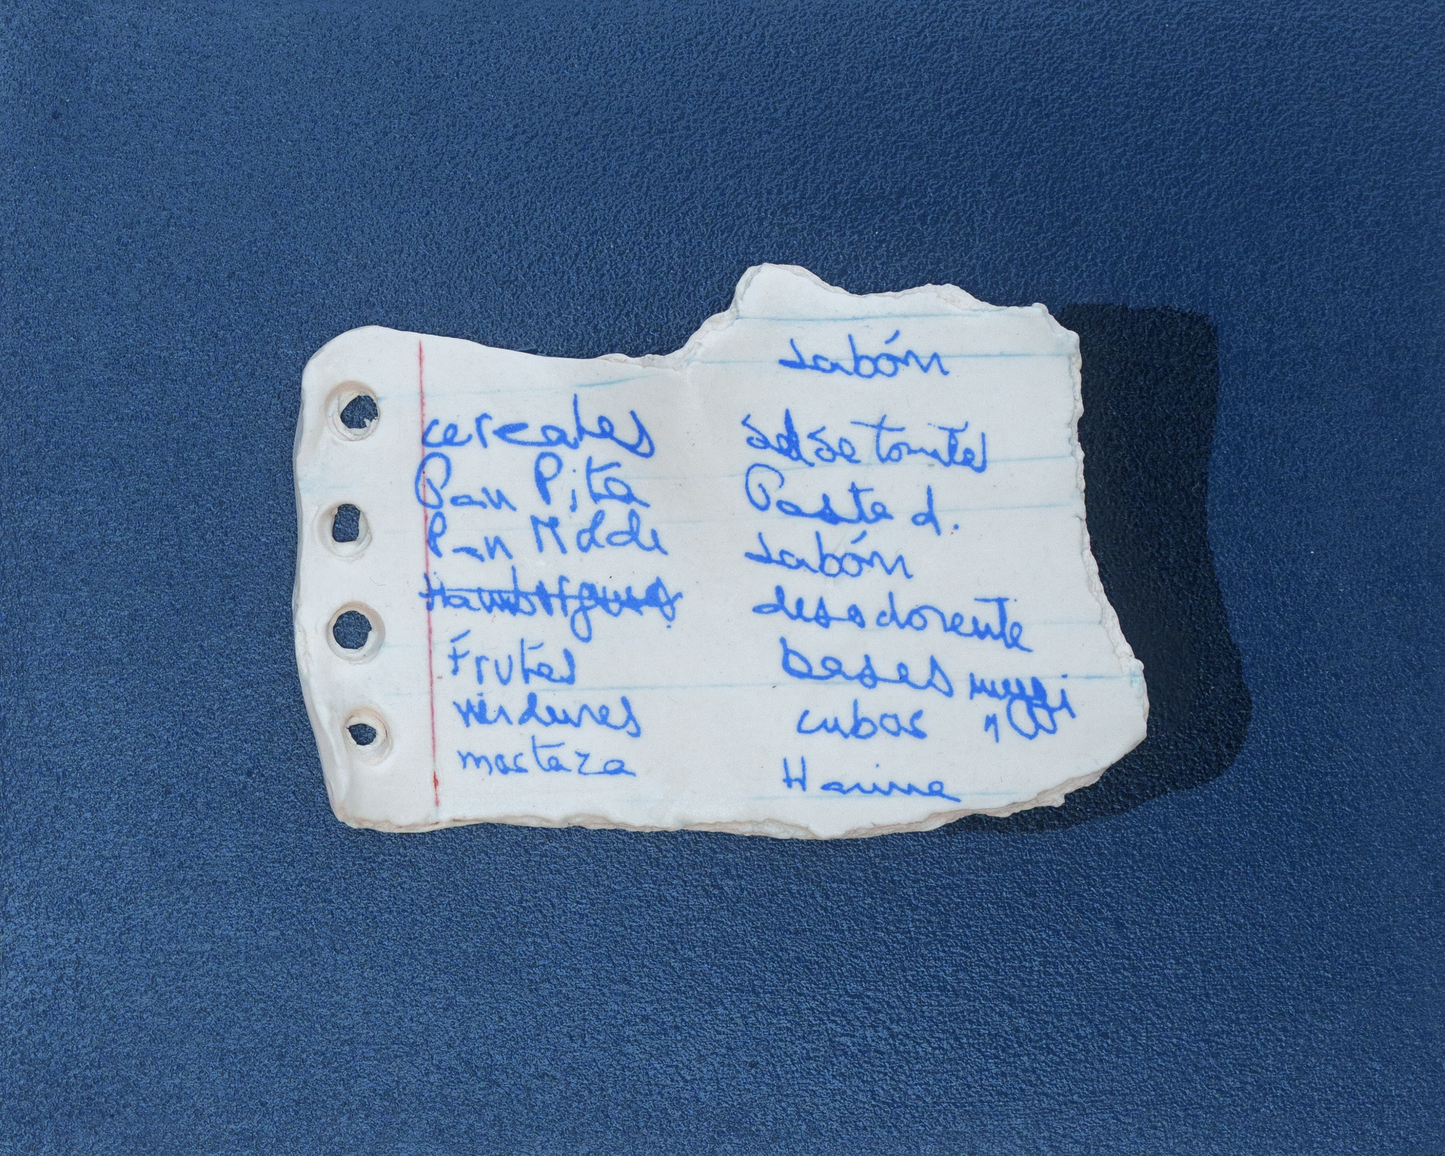 cereales
Pan Pita
Pan Molde
Hamburguesas
Frutas
verduras
mostaza
Jabón
salsa tomate
Pasta d.
Jabón
desodorante
bases
cubos maggi
Harina